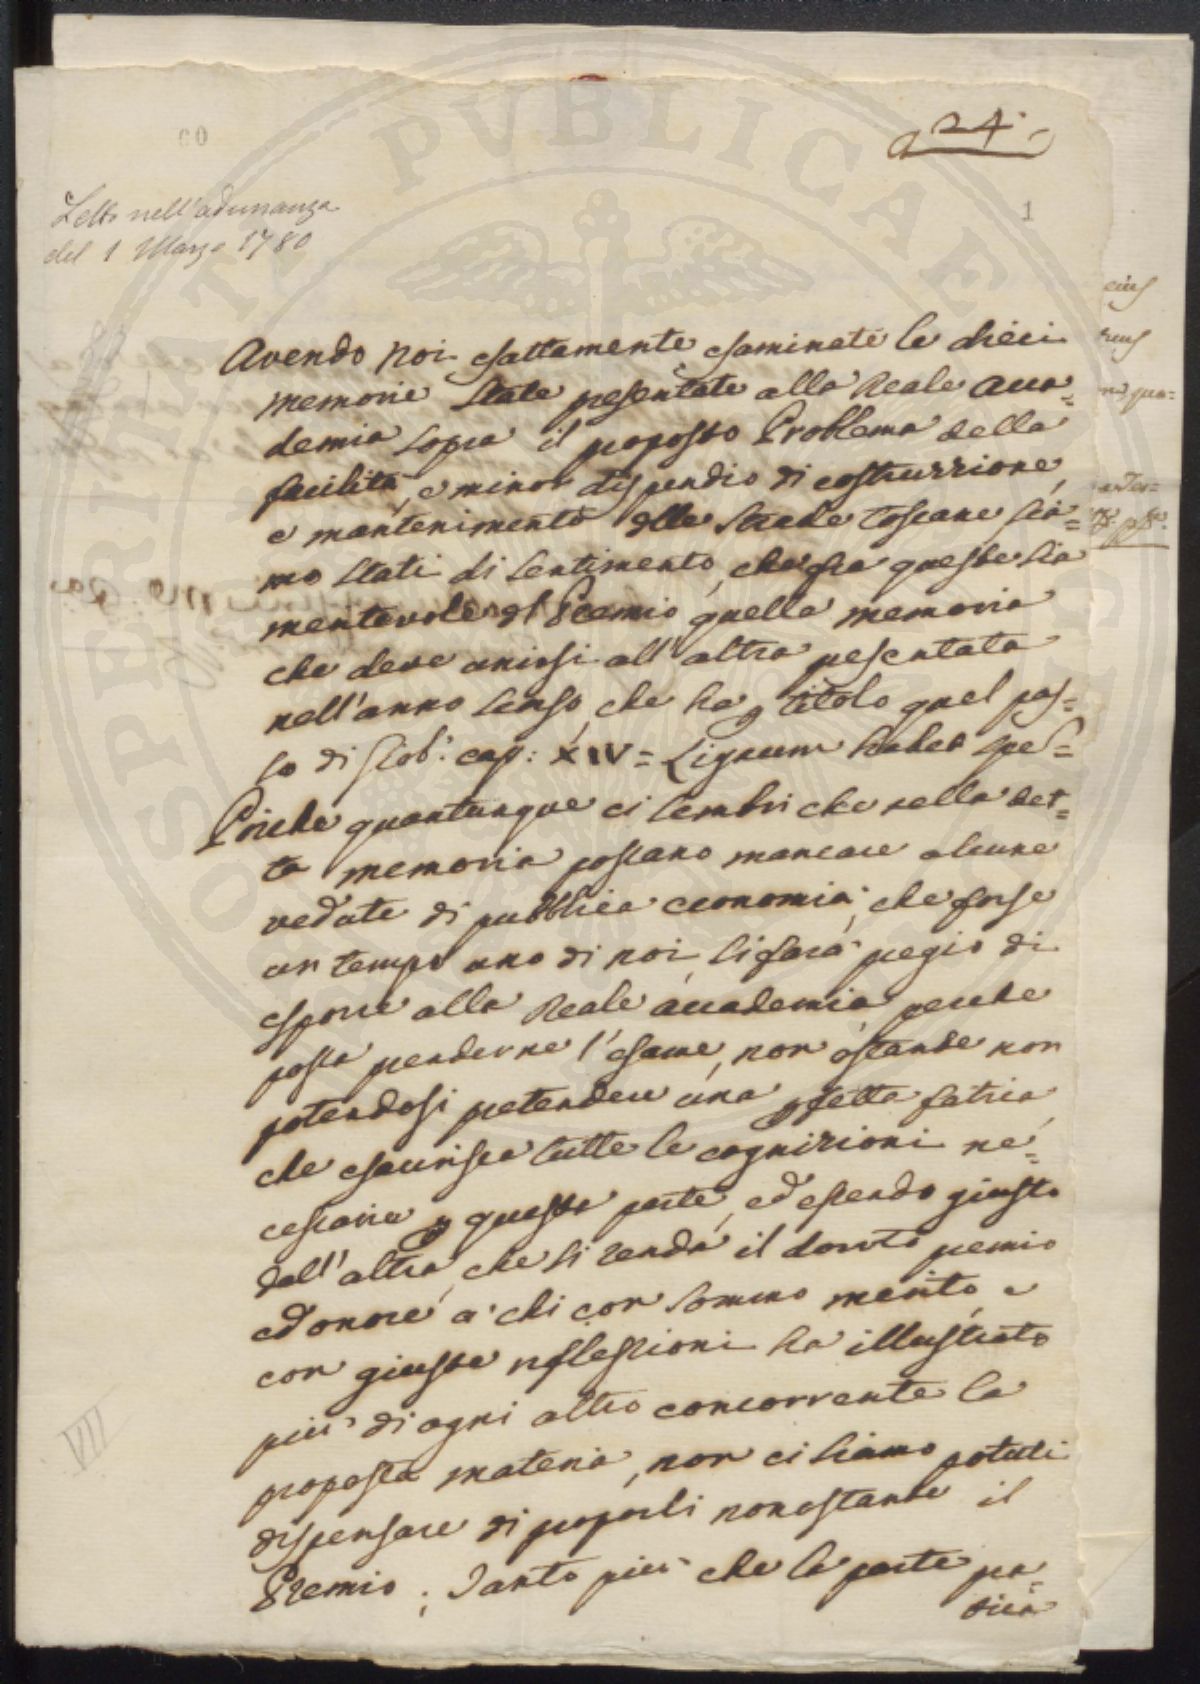 24.
60
1
Letto nell'adunanza
del 1 Marzo 1780
Avendo noi esattamente esaminate le dieci
memorie state presentate alla Reale Acca=
demia sopra il proposto Problema della
facilità, e minor dispendio di costruzzione,
e mantenimento delle strade toscane sia=
mo stati di sentimento, che fra queste sia
meritevole del Premio quella memoria
che deve unirsi all'altra presentata
nell'anno scorso, che ha p titolo quel pas=
so di Giob: cap: XIV = Lignum habet spes=
Poiche quantunque ci sembri che nella det=
ta memoria possano mancare alcune
vedute di pubblica economia, che forse
un tempo uno di noi si farà pregio di
esporre alla Reale Accademia perche
possa prenderne l'esame, non ostante non
potendosi pretendere una pfetta fatica,
che esaurisca tutte le cognizioni ne=
cessarie p questa parte, ed essendo giusto
dall'altra, che si renda il dovuto premio
ed onore a chi con sommo merito, e
con giuste riflessioni ha illustrato
più di ogni altro concorrente la
proposta materia, non ci siamo potuti
dispensare di proporli nonostante il
Premio; Tanto più che la parte pra=
tica
VII
eius